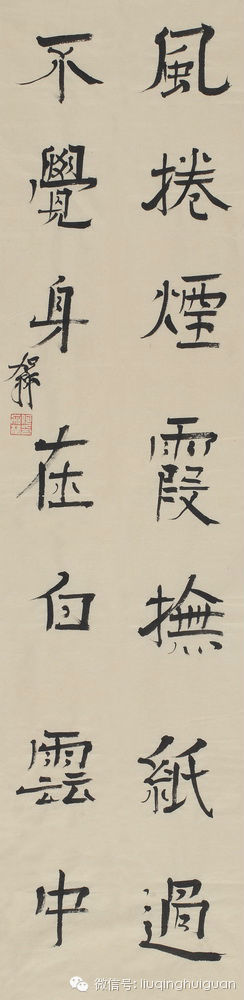 風捲煙霞撫紙過
不覺身在白雲中
微信号: liuqinghuiguan